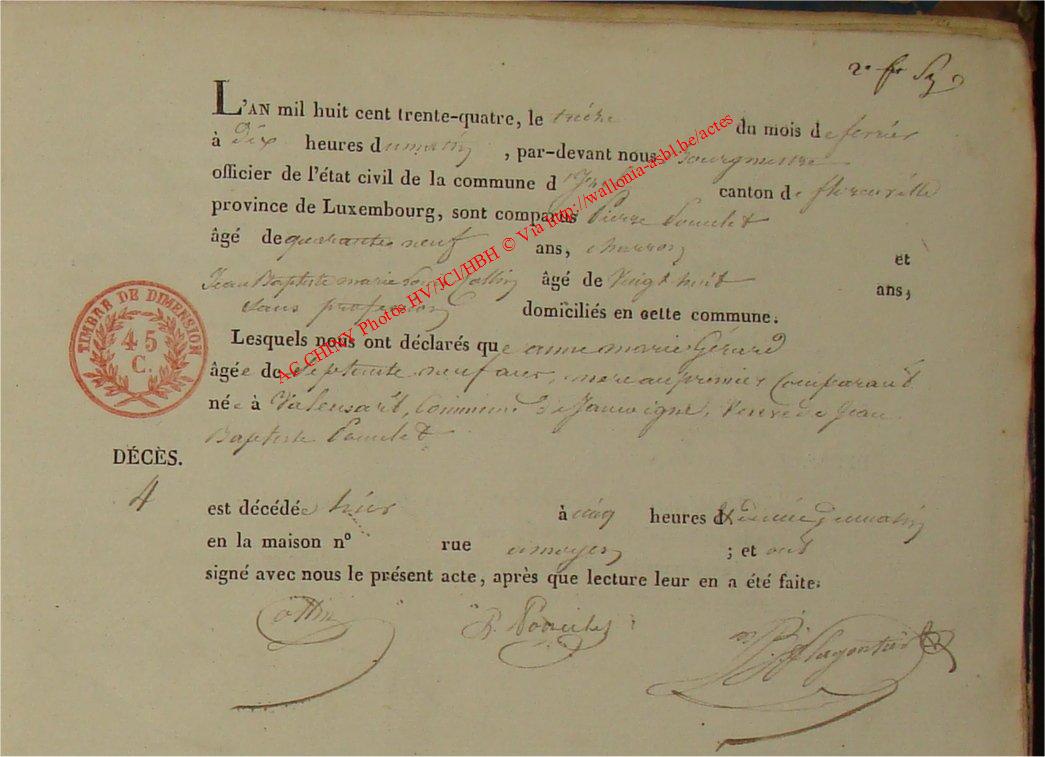 2e
L'AN mil huit cent trente-quatre, le treize du mois de fevrier
à Dix heures du matin, par-devant nous Bourgmestre
officier de l'état civil de la commune d canton de florenville
province de Luxembourg, sont comparus Pierre Poncelet
âgé de quarante neuf ans, charron et
Jean Baptiste marie Collin âgé de Vingt huit ans,
Sans profession domiciliés en cette commune.
Lesquels nous ont déclarés que anne marie Gérard
âgée de Septente neuf ans, mere au premier Comparant
née à Valensart, Commune de Jamoigne, Veuve de Jean
Baptiste Poncelet
DÉCÈS.
4
est décédée hier à cinq heures & demie du matin
en la maison no rue ; et ont
signé avec nous le présent acte, après que lecture leur en a été faite.
Collin P. Poncelet
TIMBRE DE DIMENSION
45
C.
AC CHINY Photos HV/JCl/HBH © Via http://wallonia-asbl.be/actes